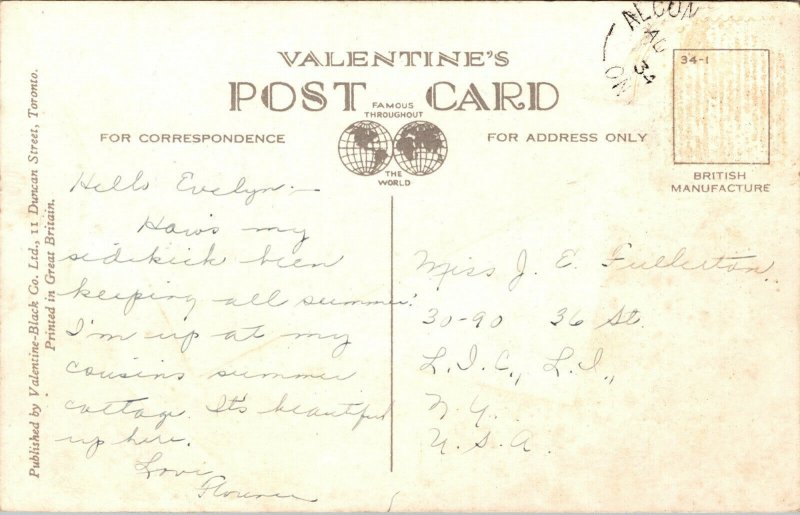 VALENTINE'S
POST CARD
FAMOUS
THROUGHOUT
THE
WORLD
FOR CORRESPONDENCE
FOR ADDRESS ONLY
34-1
BRITISH
MANUFACTURE
34
Published by Valentine-Black Co. Ltd., 11 Duncan Street, Toronto.
Printed in Great Britain.
Hello Evelyn —
How's my
sidekick been
keeping all summer?
I'm up at my
cousins summer
cottage. It's beautiful
up here.
Love
Florence
Miss J. E. Fullerton
30-90 36 St.
L.I.C., L.I.,
N.Y.
U.S.A.